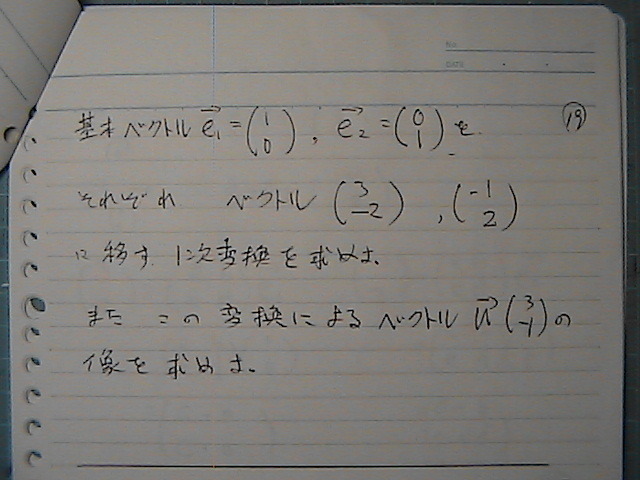 No.
DATE
基本ベクトル e₁→=(1 0), e₂→=(0 1)を ⑲
それぞれ ベクトル (3 -2), (-1 2)
に移す 1次変換を求めよ。
また この変換によるベクトル u→(3 -1)の
像を求めよ。